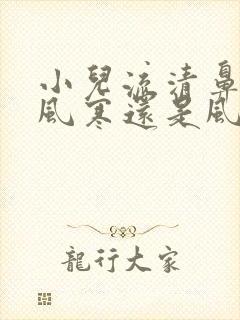 小兒流清鼻
風寒還是風
龍行大家